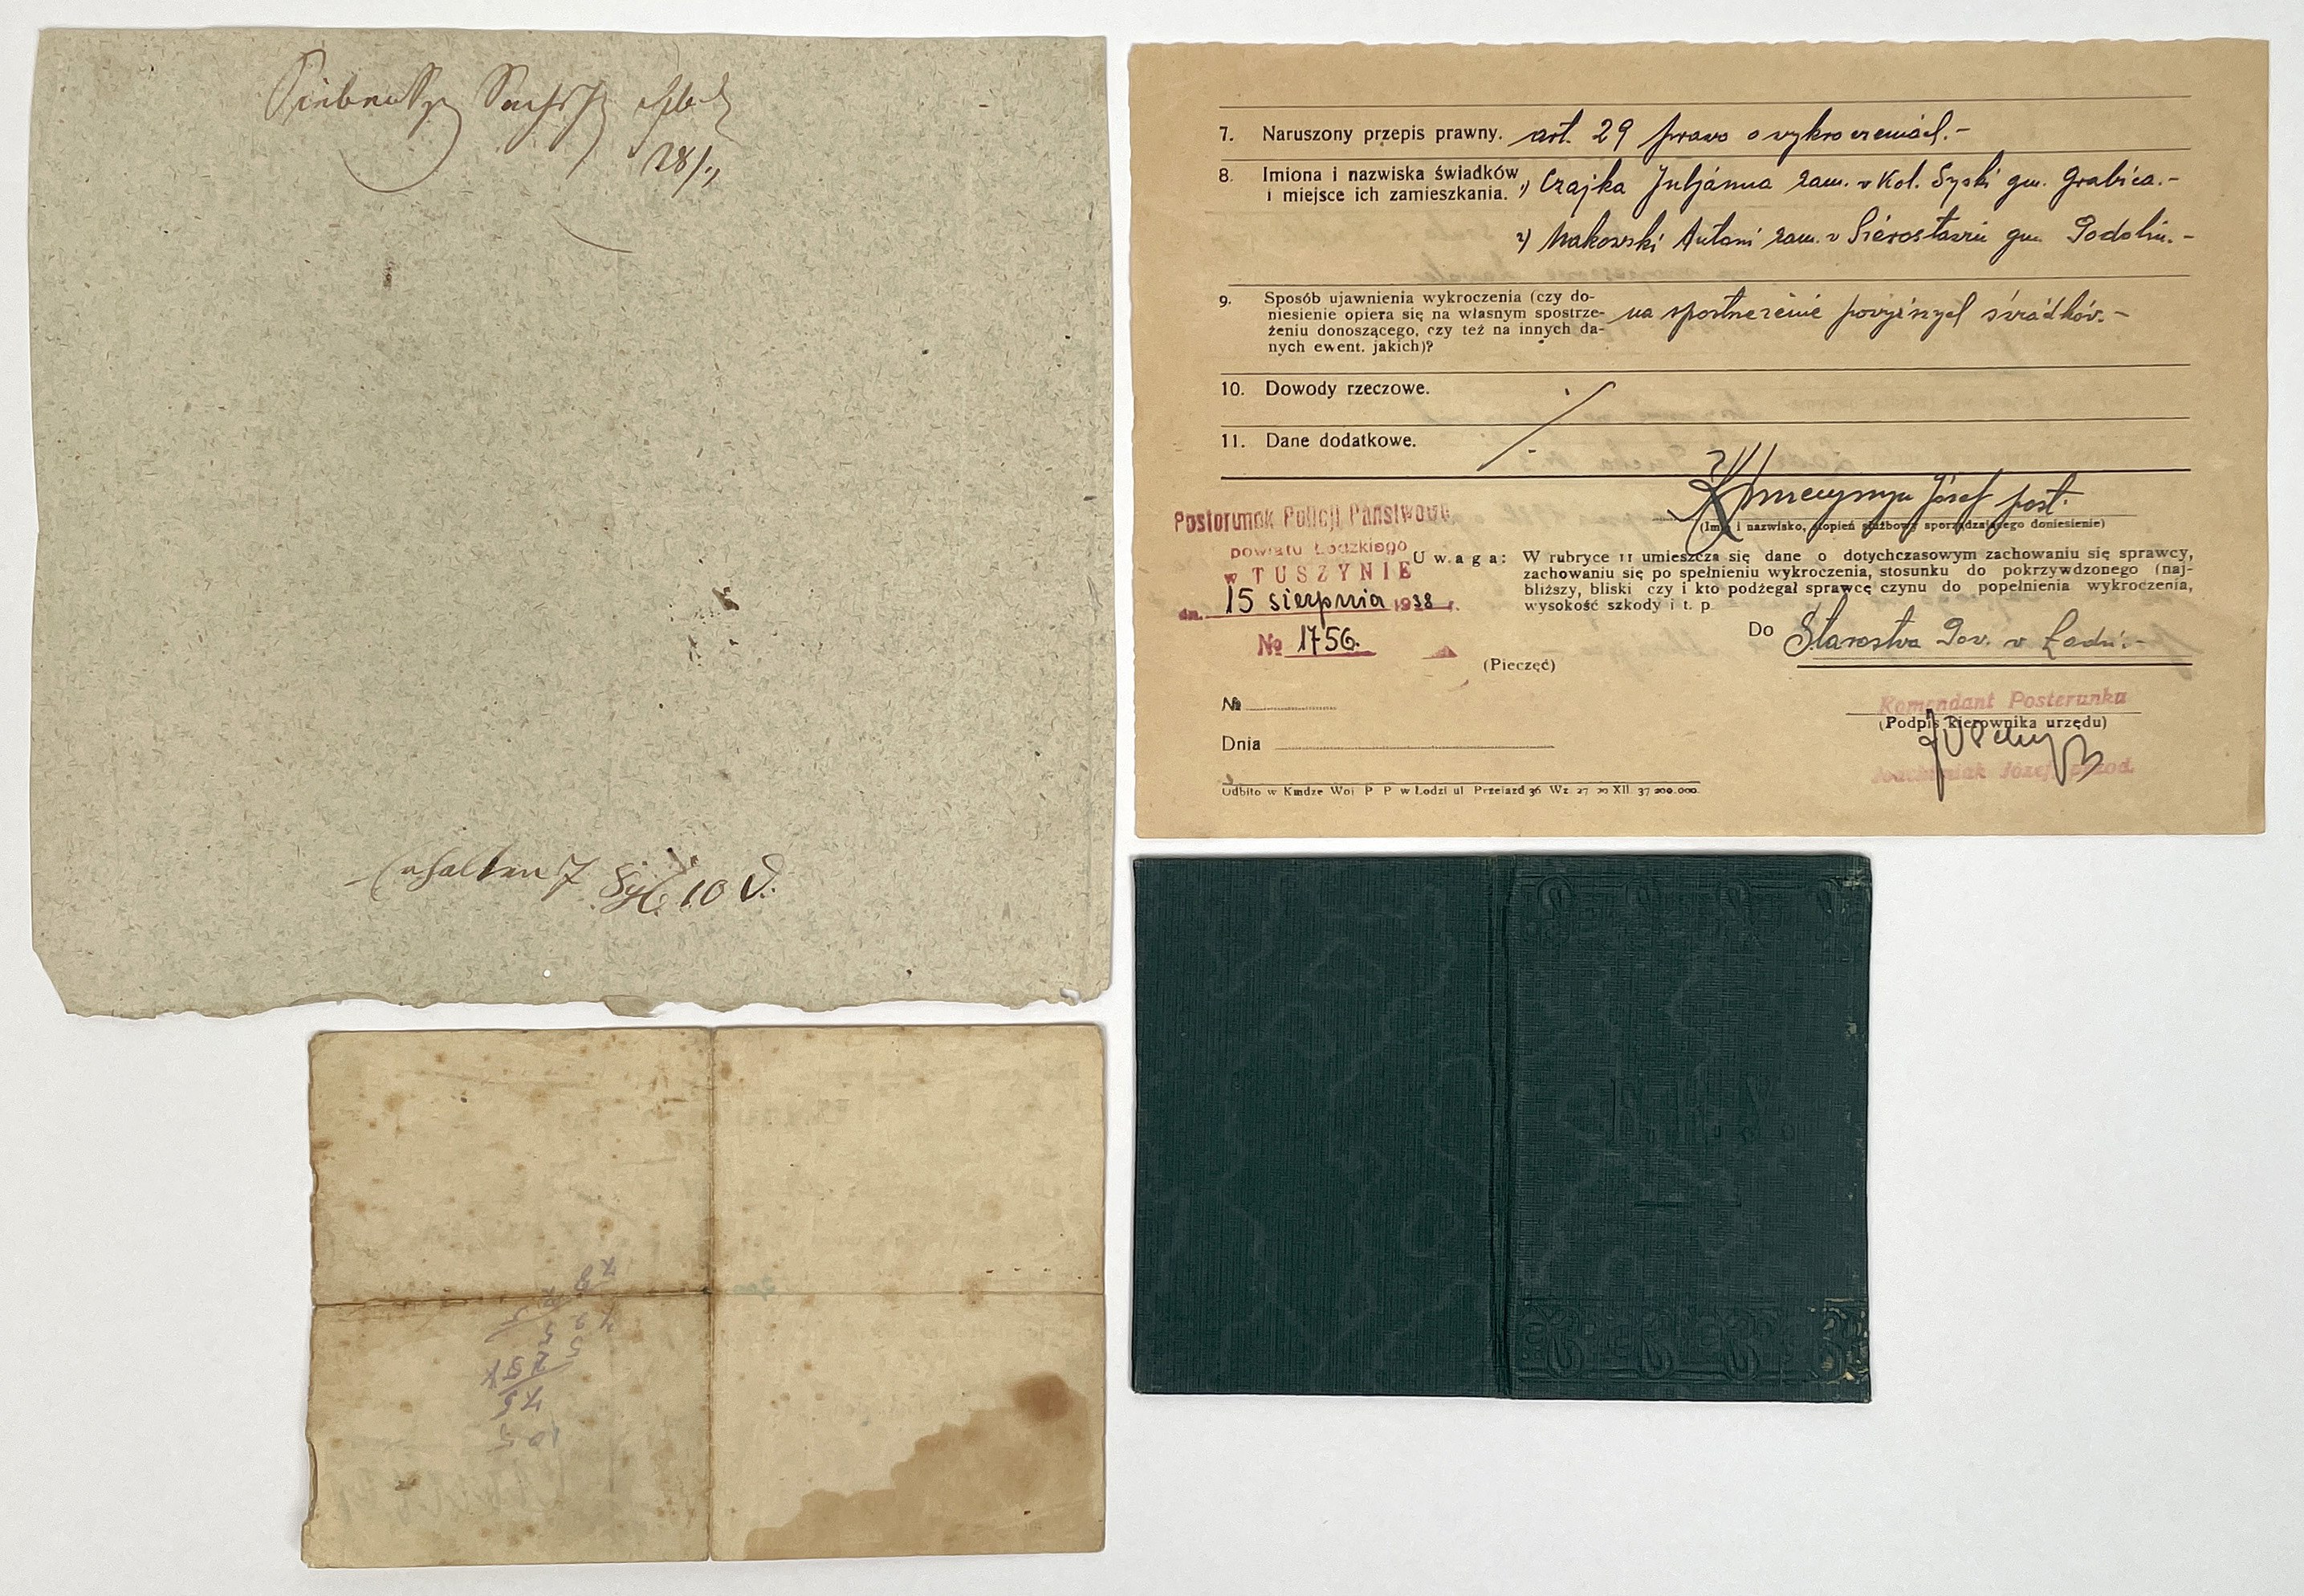 28/
erhalten 7 Sgl 10 d.
7. Naruszony przepis prawny. art. 29 prawo o wykroczeniach.-
8. Imiona i nazwiska świadków
i miejsce ich zamieszkania. 1) Czajka Juljanna zam. w Kol. Syski gm. Grabica.-
2) Makowski Antoni zam. w Sierosławiu gm. Podolin.-
9. Sposób ujawnienia wykroczenia (czy do-
niesienie opiera się na własnym spostrze- na spostrzeżenie powyższych świadków.-
żeniu donoszącego, czy też na innych da-
nych ewent. jakich)?
10. Dowody rzeczowe.
11. Dane dodatkowe.
Józef post.
(Imię i nazwisko, stopień służbowy sporządzającego doniesienie)
Posterunek Policji Państwowej
powiatu Łódzkiego
w TUSZYNIE
dn. 15 sierpnia 1938 r.
№ 1756.
(Pieczęć)
Uwaga: W rubryce 11 umieszcza się dane o dotychczasowym zachowaniu się sprawcy,
zachowaniu się po spełnieniu wykroczenia, stosunku do pokrzywdzonego (naj-
bliższy, bliski czy i kto podżegał sprawcę czynu do popełnienia wykroczenia,
wysokość szkody i t. p.
Do Starostwa Pow. w Łodzi.-
№
Dnia
Komendant Posterunku
(Podpis kierownika urzędu)
Joachimiak Józef przod.
Odbito w Kmdzie Woj P P w Łodzi ul Przejazd 36 Wz. 27 20 XII. 37 200.000.